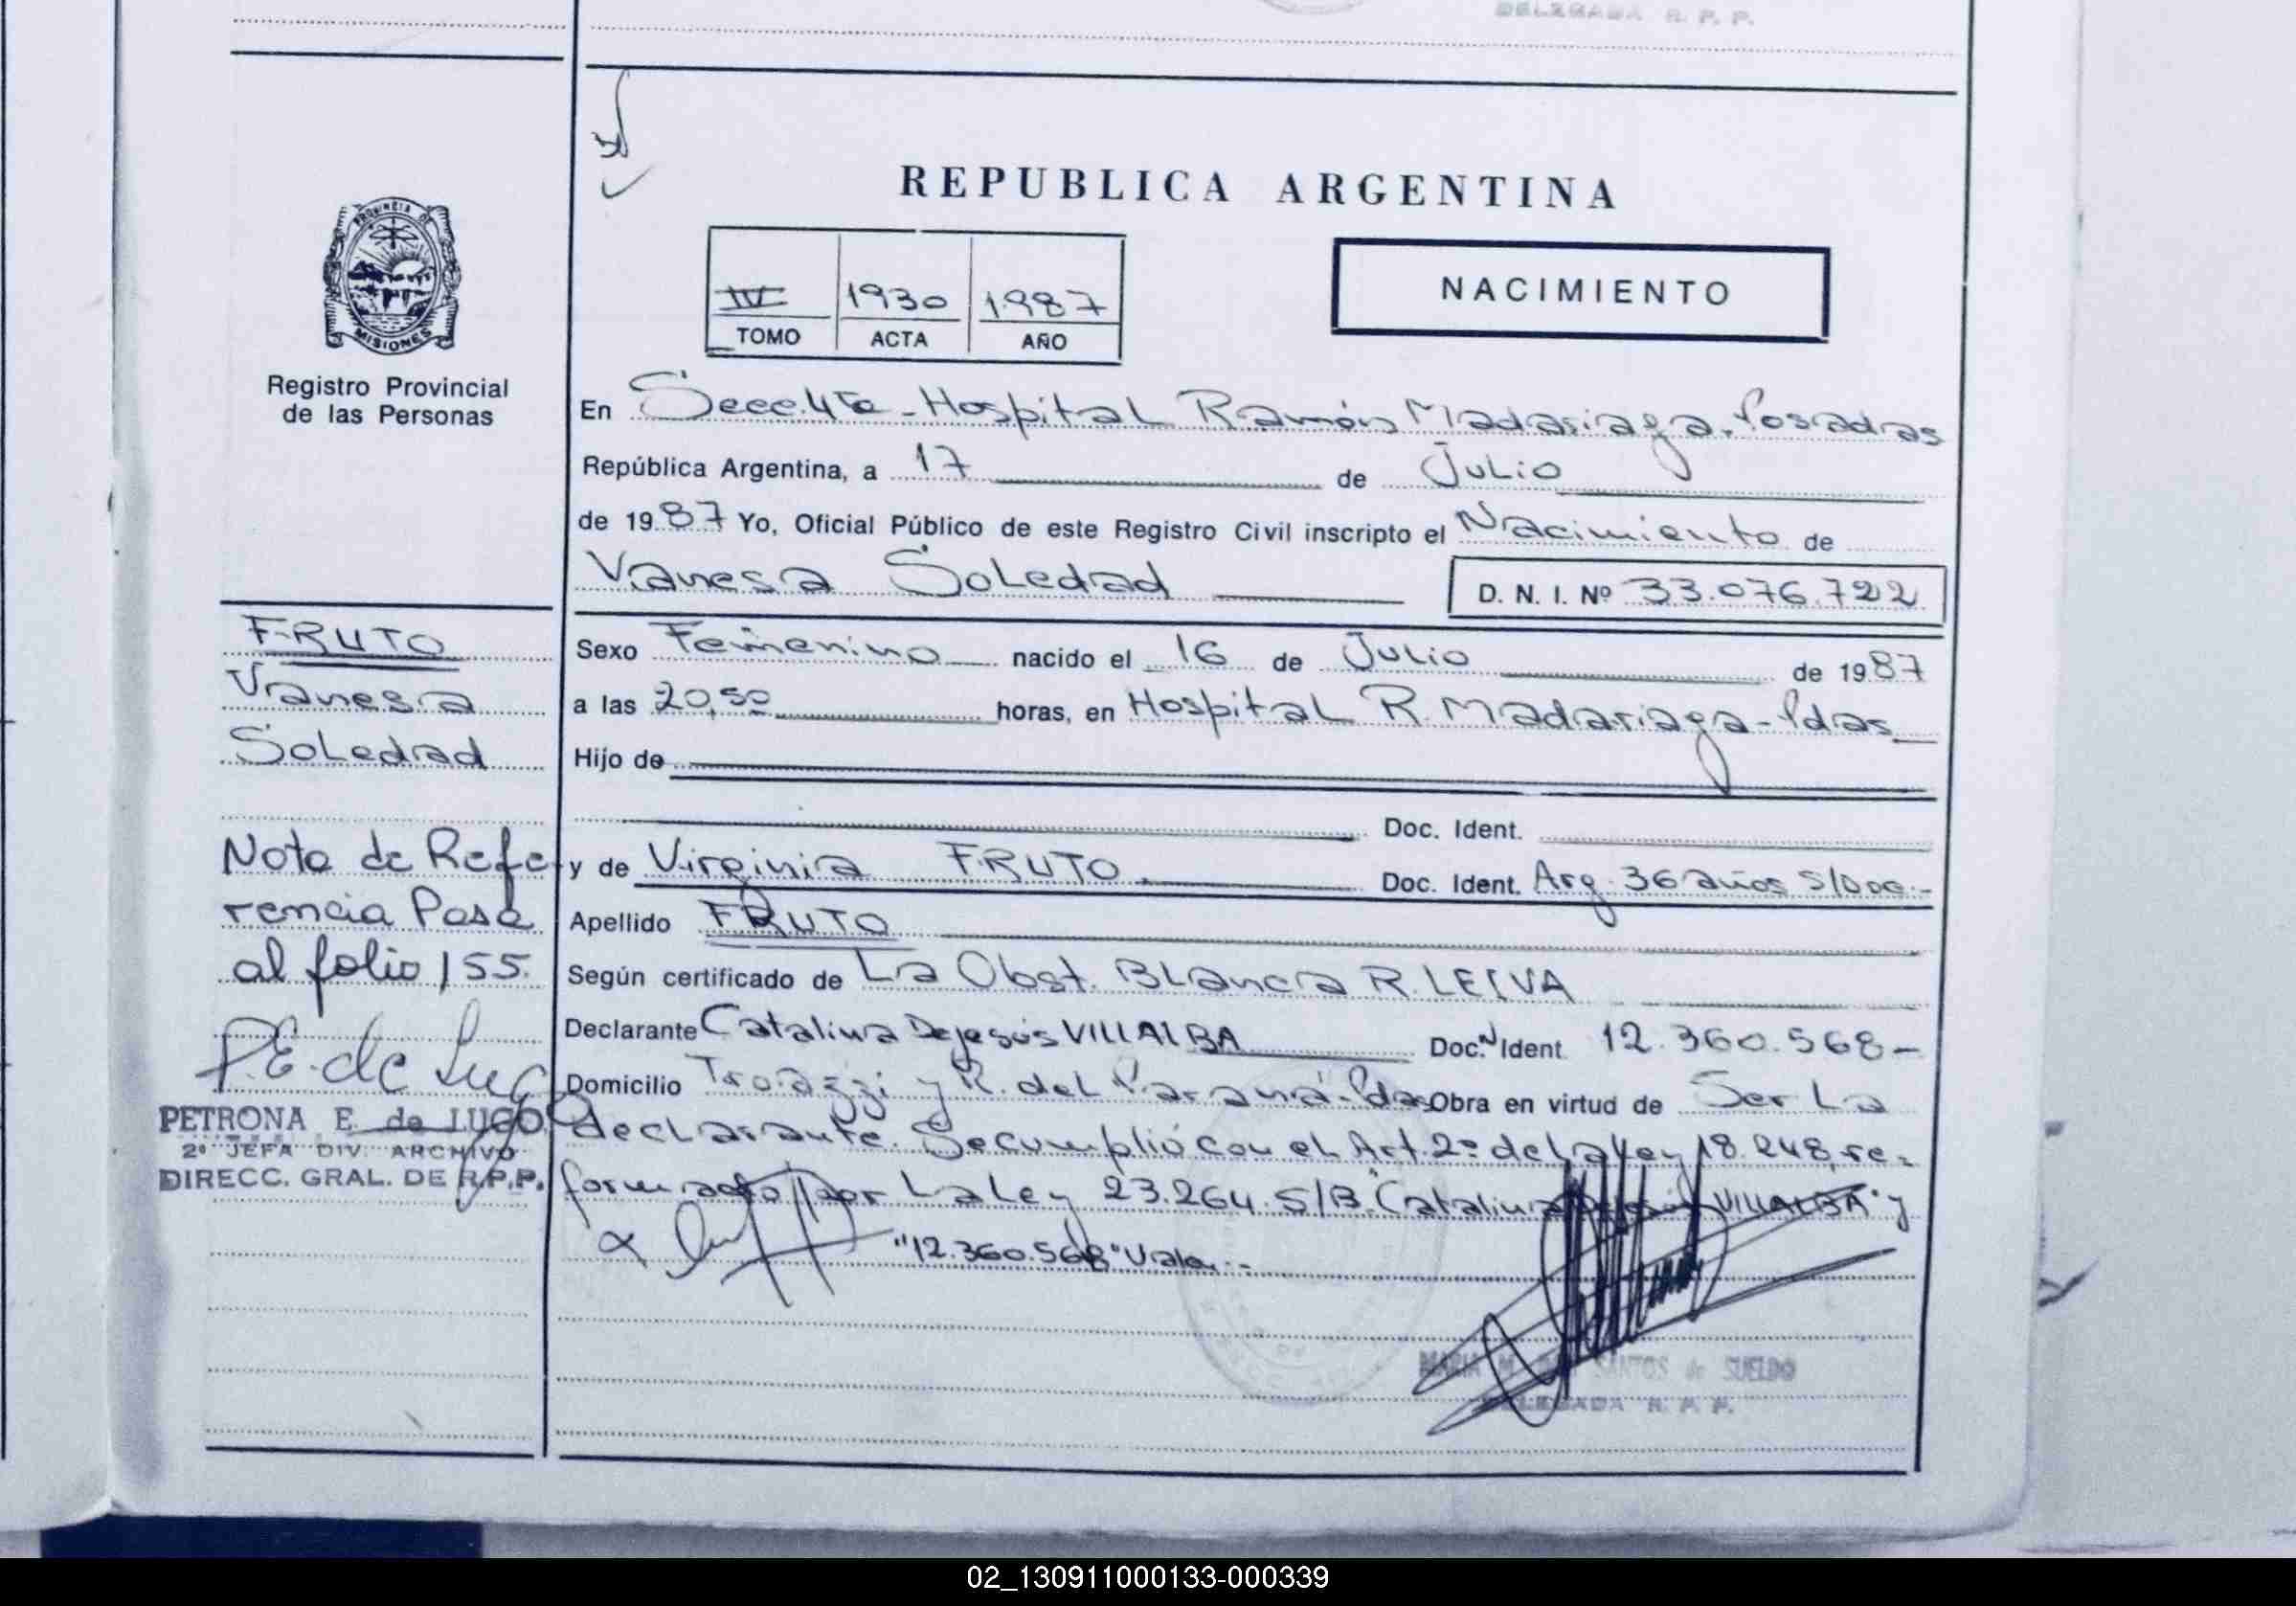 DELEGADA R. P. P.
REPUBLICA ARGENTINA
PROVINCIA DE
MISIONES
Registro Provincial
de las Personas
IV 1930 1987
TOMO ACTA AÑO
NACIMIENTO
En Secc. 4ta - Hospital Ramón Madariaga. Posadas
República Argentina, a 17 de Julio
de 1987 Yo, Oficial Público de este Registro Civil inscripto el Nacimiento de
Vanesa Soledad D. N. I. Nº 33.076.722
Sexo Femenino nacido el 16 de Julio de 1987
a las 20,50 horas, en Hospital R. Madariaga - Pdas
Hijo de
Doc. Ident.
y de Virginia FRUTO Doc. Ident. Arg. 36 años S/Doc.-
Apellido FRUTO
Según certificado de La Obst. Blanca R. LEIVA
Declarante Catalina Dejesús VILLALBA Doc. Ident. 12.360.568-
Domicilio y R. del Paraná - Pdas Obra en virtud de Ser La
declarante. Se cumplió con el Art. 2º de la Ley 18.248, re-
formado por La Ley 23.264. S/B: "Catalina Dejesús VILLALBA" y
"12.360.568" Vale.-
MARIA M. DOS SANTOS de SUELDO
DELEGADA R. P. P.
FRUTO
Vanesa
Soledad
Nota de Refe
rencia Pasa
al folio 155.
P.E. de Lugo
PETRONA E. de LUGO
2º JEFA DIV. ARCHIVO
DIRECC. GRAL. DE R.P.P.
02_130911000133-000339